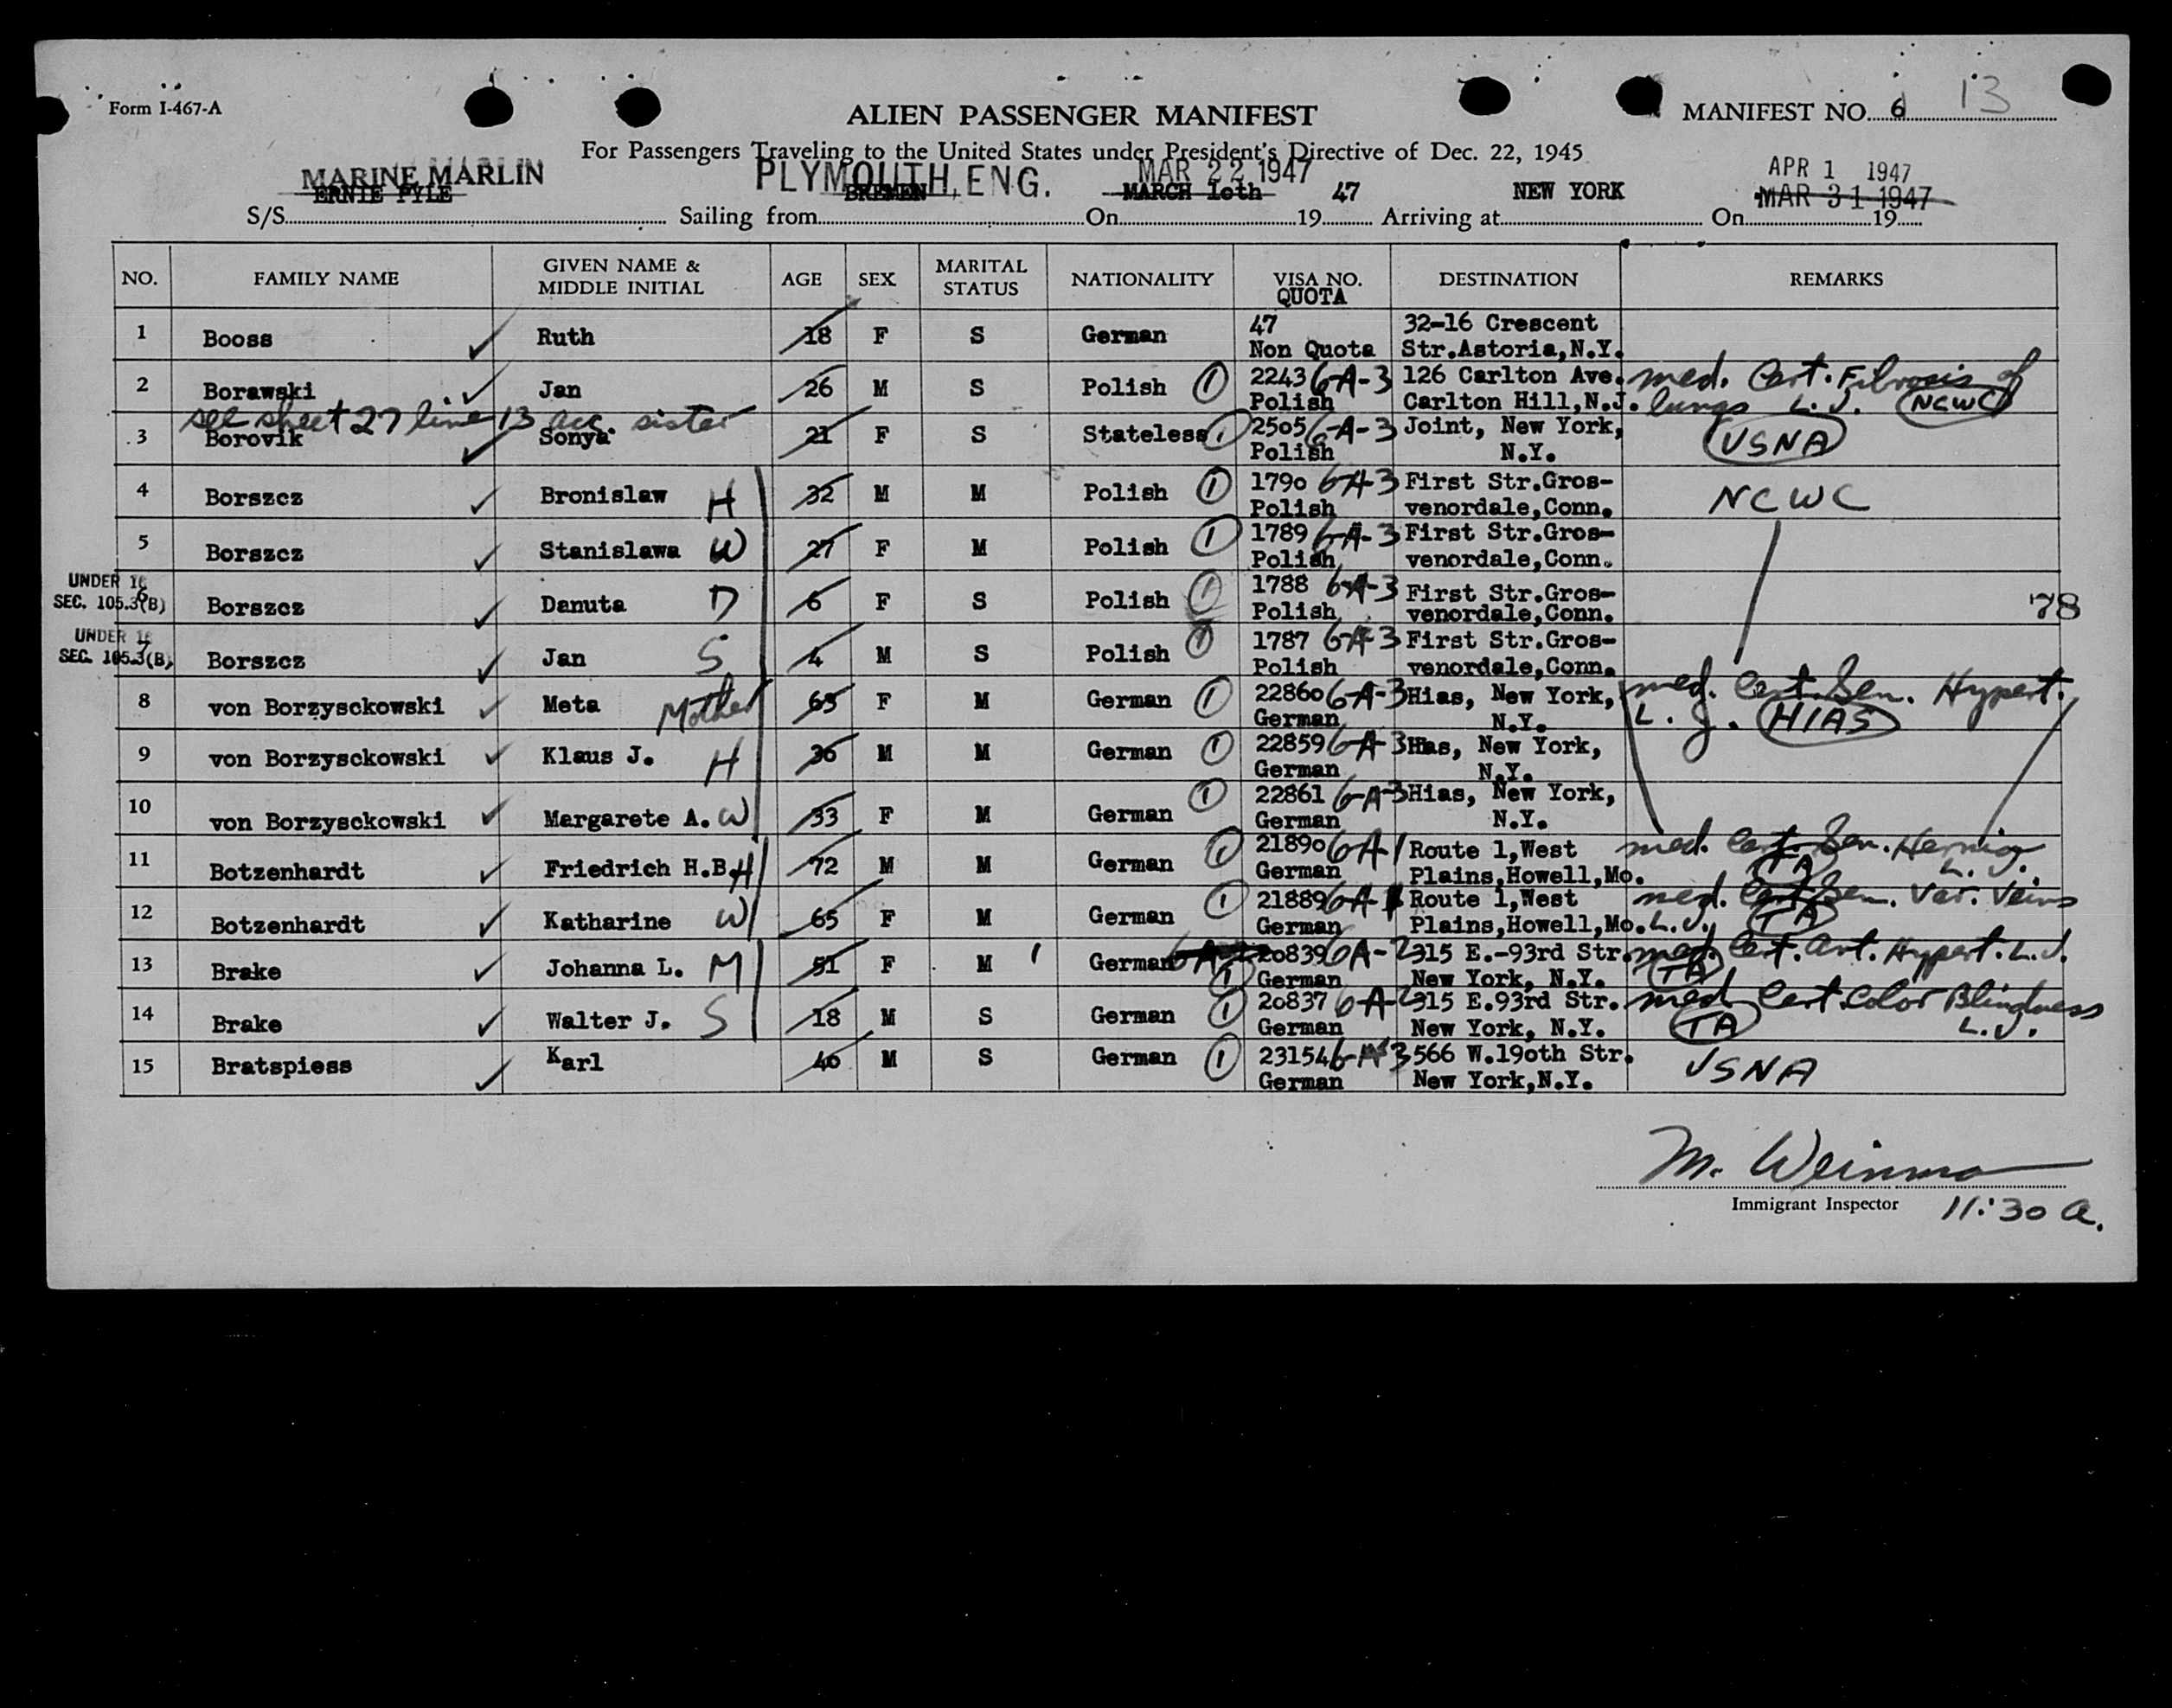 Form I-467-A
ALIEN PASSENGER MANIFEST
MANIFEST NO. 6 13
For Passengers Traveling to the United States under President's Directive of Dec. 22, 1945
MARINE MARLIN PLYMOUTH, ENG. MAR 22 1947 APR 1 1947
ERNIE PYLE BREMEN MARCH 10th 47 NEW YORK MAR 31 1947
S/S Sailing from On 19 Arriving at On 19
NO. FAMILY NAME GIVEN NAME & MIDDLE INITIAL AGE SEX MARITAL STATUS NATIONALITY VISA NO. QUOTA DESTINATION REMARKS
1 Booss Ruth 18 F S German 47 Non Quota 32-16 Crescent Str.Astoria,N.Y.
2 Borawski Jan 26 M S Polish 1 2243 6-A-3 Polish 126 Carlton Ave. Carlton Hill,N.J. med. Cert. Fibrosis of lungs L.J. NCWC
see sheet 27 line 13 acc sister
3 Borovik Sonya 21 F S Stateless 1 2505 6-A-3 Polish Joint, New York, N.Y. USNA
4 Borszcz Bronislaw H 32 M M Polish 1 1790 6-A-3 Polish First Str.Gros-venordale,Conn. NCWC
5 Borszcz Stanislawa W 27 F M Polish 1 1789 6-A-3 Polish First Str.Gros-venordale,Conn.
UNDER 16 SEC. 105.3(B) 6 Borszcz Danuta D 6 F S Polish 1 1788 6-A-3 Polish First Str.Gros-venordale,Conn. 78
UNDER 16 SEC. 105.3(B) 7 Borszcz Jan S 4 M S Polish 1 1787 6-A-3 Polish First Str.Gros-venordale,Conn.
8 von Borzysckowski Meta Mother 65 F M German 1 22860 6-A-3 German Hias, New York, N.Y. med. Cert. Sen. Hypert. L.J. HIAS
9 von Borzysckowski Klaus J. H 36 M M German 1 22859 6-A-3 German Hias, New York, N.Y.
10 von Borzysckowski Margarete A. W 33 F M German 1 22861 6-A-3 German Hias, New York, N.Y.
11 Botzenhardt Friedrich H.B. H 72 M M German 1 21890 6A-1 German Route 1,West Plains,Howell,Mo. med. Cert. Sen. Hernia. L.J. TA
12 Botzenhardt Katharine W 65 F M German 1 21889 6-A-1 German Route 1,West Plains,Howell,Mo. med. Cert. Sen. Var. Veins L.J. TA
13 Brake Johanna L. M 51 F M German 1 20839 6A-2 German 315 E.-93rd Str. New York, N.Y. med. Cert. Art. Hypert. L.J. TA
14 Brake Walter J. S 18 M S German 1 20837 6A-2 German 315 E.93rd Str. New York, N.Y. med Cert. Color Blindness L.J. TA
15 Bratspiess Karl 40 M S German 1 23154 6-A-3 German 566 W.190th Str. New York,N.Y. USNA
M. Weinman
Immigrant Inspector 11:30 a.